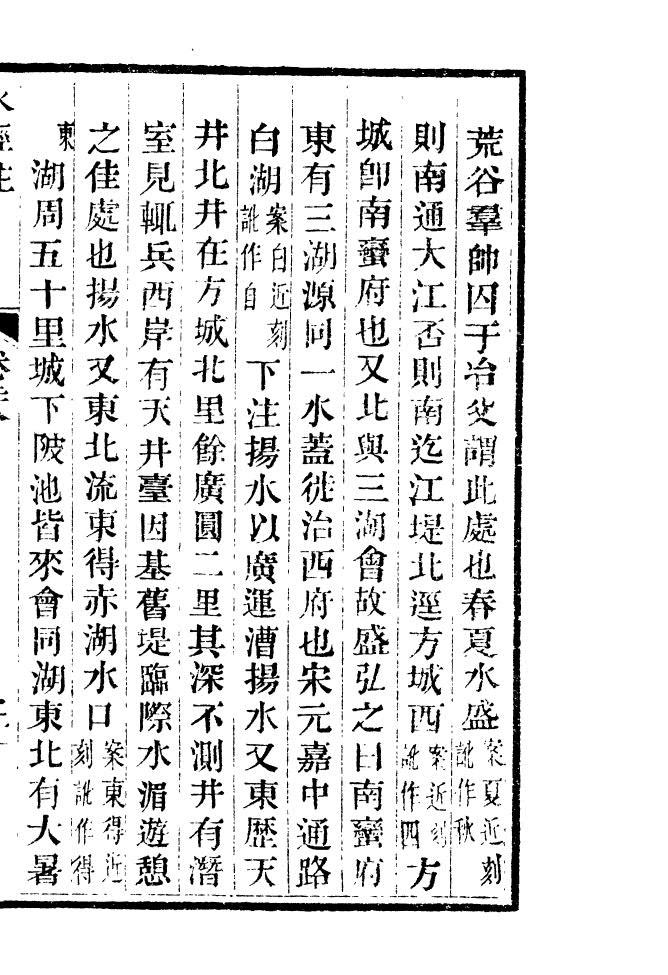 荒谷羣帥囚于冶父謂此處也春夏水盛案夏近刻訛作秋
則南通大江否則南迄江堤北逕方城西案近刻訛作四方
城卽南蠻府也又北與三湖會故盛弘之曰南蠻府
東有三湖源同一水蓋徙治西府也宋元嘉中通路
白湖案白近刻訛作自下注揚水以廣運漕揚水又東歷天
井北井在方城北里餘廣圓二里其深不測井有潛
室見輒兵西岸有天井臺因基舊堤臨際水湄遊憩
之佳處也揚水又東北流東得赤湖水口案東得近刻訛作得
東湖周五十里城下陂池皆來會同湖東北有大暑
水經注